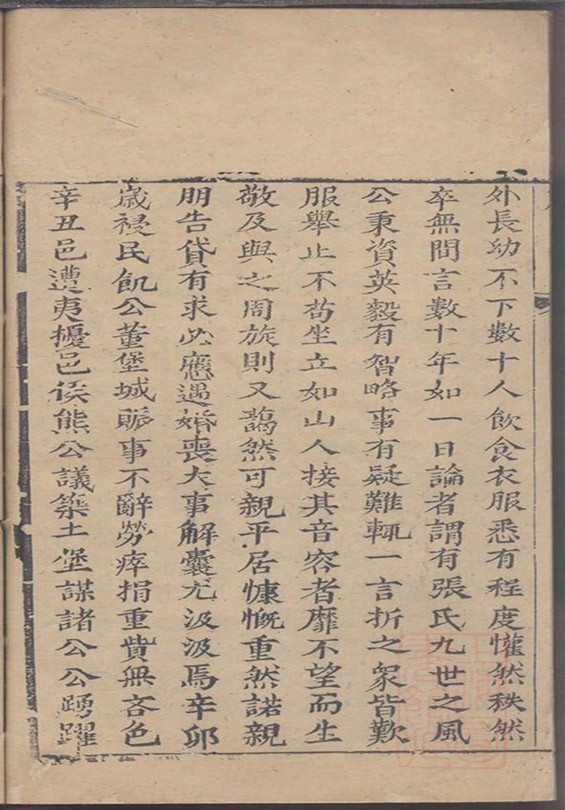 外長幼不下數十人飲食衣服悉有程度懽然秩然
卒無間言數十年如一日論者謂有張氏九世之風
公秉資英毅有智略事有疑難輒一言折之衆皆歎
服舉止不苟坐立如山人接其音容者靡不望而生
敬及與之周旋則又藹然可親平居慷慨重然諾親
朋告貸有求必應遇婚喪大事解囊尤汲汲焉辛卯
歳祲民飢公董堡城賑事不辭勞瘁捐重貲無吝色
辛丑邑遭夷擾邑侯熊公議築土堡謀諸公公踴躍